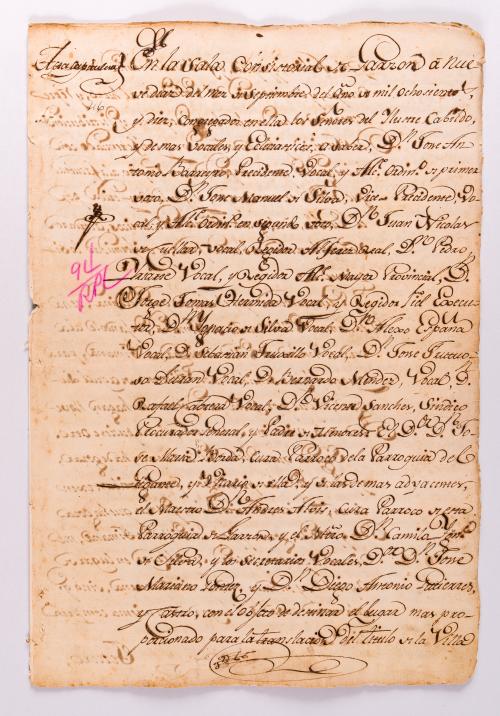 En la Sala Consistorial de Garzon á nue
ve dias del mes de Septiembre del Año de mil ochocient.s
y diez, congregados en ella los Señores del Ilustre Cabildo,
y demas Vocales y Eclesiasticos, á saber, D.n Jose An
tonio Barreyro, Presidente Vocal, y Alc.e Ordin.o de primer
voto, D.n Jose Manuel de Silva, Vice Presidente, Vo
cal, y Alc.e Ordin.o en segundo voto, D.n Juan Nicolas
Vocal Regidor Alferez Real, D.n Pedro
Vocal, y Regidor Alc.e Mayor Provincial, D.
Jorge Tomas Vocal, y Regidor Fiel Execu
tor, D.n Ygnacio de Silva Vocal, D.n Alexo España
Vocal, D. Sebastian Truxillo Vocal, D.n Jose
Duran Vocal, D. Bernardo Mendez, Vocal, D.
Rafael Cabrera Vocal, D.n Vicente Sanches, Sindico
Procurador General, y Padre de Menores: El D.or D.n Jo
se Maria Borda, Cura Parroco de la Parroquia de
y de las demas adyacentes,
el Maestro D.n Andres Cura Parroco de esta
Parroquia de Garzon, y el Mtro. D.n Camilo
y los Secretarios Vocales, D.or D.n Jose
Mariano y D.n Diego Antonio Gutierres,
y Castro, con el objeto de designar el lugar mas pro
porcionado para la translacion del titulo de la Villa
94